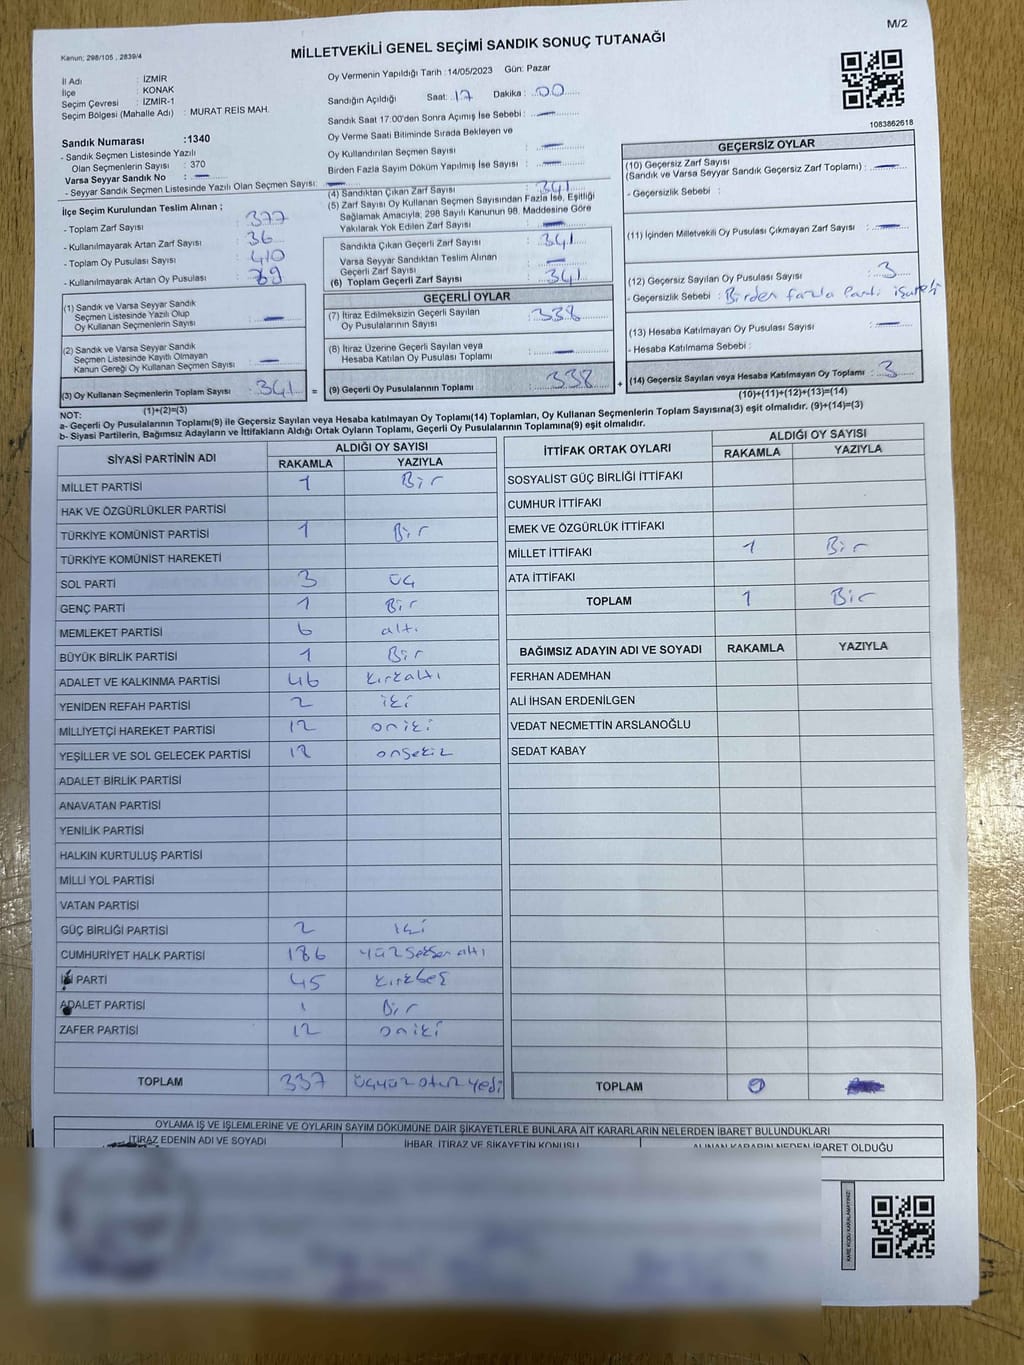 M/2
Kanun; 298/105 , 2839/4
MİLLETVEKİLİ GENEL SEÇİMİ SANDIK SONUÇ TUTANAĞI
İl Adı : İZMİR
İlçe : KONAK
Seçim Çevresi : İZMİR-1
Seçim Bölgesi (Mahalle Adı) : MURAT REİS MAH.
Sandık Numarası :1340
- Sandık Seçmen Listesinde Yazılı
Olan Seçmenlerin Sayısı : 370
Varsa Seyyar Sandık No : —
- Seyyar Sandık Seçmen Listesinde Yazılı Olan Seçmen Sayısı: —
İlçe Seçim Kurulundan Teslim Alınan ;
- Toplam Zarf Sayısı : 377
- Kullanılmayarak Artan Zarf Sayısı : 36
- Toplam Oy Pusulası Sayısı : 410
- Kullanılmayarak Artan Oy Pusulası : 69
(1) Sandık ve Varsa Seyyar Sandık
Seçmen Listesinde Yazılı Olup
Oy Kullanan Seçmenlerin Sayısı : —
(2) Sandık ve Varsa Seyyar Sandık
Seçmen Listesinde Kayıtlı Olmayan
Kanun Gereği Oy Kullanan Seçmen Sayısı : —
(3) Oy Kullanan Seçmenlerin Toplam Sayısı : 341 =
(1)+(2)=(3)
Oy Vermenin Yapıldığı Tarih :14/05/2023 Gün: Pazar
Sandığın Açıldığı Saat: 17 Dakika : 00
Sandık Saat 17:00'den Sonra Açımış İse Sebebi : —
Oy Verme Saati Bitiminde Sırada Bekleyen ve
Oy Kullandırılan Seçmen Sayısı : —
Birden Fazla Sayım Döküm Yapılmış İse Sayısı : —
(4) Sandıktan Çıkan Zarf Sayısı : 341
(5) Zarf Sayısı Oy Kullanan Seçmen Sayısından Fazla İse, Eşitliği
Sağlamak Amacıyla, 298 Sayılı Kanunun 98. Maddesine Göre
Yakılarak Yok Edilen Zarf Sayısı : —
Sandıkta Çıkan Geçerli Zarf Sayısı : 341
Varsa Seyyar Sandıktan Teslim Alınan
Geçerli Zarf Sayısı : —
(6) Toplam Geçerli Zarf Sayısı : 341
GEÇERLİ OYLAR
(7) İtiraz Edilmeksizin Geçerli Sayılan
Oy Pusulalarının Sayısı : 338
(8) İtiraz Üzerine Geçerli Sayılan veya
Hesaba Katılan Oy Pusulası Toplamı : —
(9) Geçerli Oy Pusulalarının Toplamı : 338 +
1083862618
GEÇERSİZ OYLAR
(10) Geçersiz Zarf Sayısı
(Sandık ve Varsa Seyyar Sandık Geçersiz Zarf Toplamı) : —
- Geçersizlik Sebebi :
(11) İçinden Milletvekili Oy Pusulası Çıkmayan Zarf Sayısı : —
(12) Geçersiz Sayılan Oy Pusulası Sayısı : 3
- Geçersizlik Sebebi : Birden fazla Parti işareti
(13) Hesaba Katılmayan Oy Pusulası Sayısı : —
- Hesaba Katılmama Sebebi :
(14) Geçersiz Sayılan veya Hesaba Katılmayan Oy Toplamı : 3
(10)+(11)+(12)+(13)=(14)
NOT:
a- Geçerli Oy Pusulalarının Toplamı(9) ile Geçersiz Sayılan veya Hesaba katılmayan Oy Toplamı(14) Toplamları, Oy Kullanan Seçmenlerin Toplam Sayısına(3) eşit olmalıdır. (9)+(14)=(3)
b- Siyasi Partilerin, Bağımsız Adayların ve İttifakların Aldığı Ortak Oyların Toplamı, Geçerli Oy Pusulalarının Toplamına(9) eşit olmalıdır.
SİYASİ PARTİNİN ADI ALDIĞI OY SAYISI
RAKAMLA YAZIYLA
MİLLET PARTİSİ 1 Bir
HAK VE ÖZGÜRLÜKLER PARTİSİ
TÜRKİYE KOMÜNİST PARTİSİ 1 Bir
TÜRKİYE KOMÜNİST HAREKETİ
SOL PARTİ 3 üç
GENÇ PARTİ 1 Bir
MEMLEKET PARTİSİ 6 altı
BÜYÜK BİRLİK PARTİSİ 1 Bir
ADALET VE KALKINMA PARTİSİ 46 kırkaltı
YENİDEN REFAH PARTİSİ 2 iki
MİLLİYETÇİ HAREKET PARTİSİ 12 oniki
YEŞİLLER VE SOL GELECEK PARTİSİ 18 onsekiz
ADALET BİRLİK PARTİSİ
ANAVATAN PARTİSİ
YENİLİK PARTİSİ
HALKIN KURTULUŞ PARTİSİ
MİLLİ YOL PARTİSİ
VATAN PARTİSİ
GÜÇ BİRLİĞİ PARTİSİ 2 iki
CUMHURİYET HALK PARTİSİ 186 yüzseksenaltı
İYİ PARTİ 45 kırkbeş
ADALET PARTİSİ 1 Bir
ZAFER PARTİSİ 12 oniki
TOPLAM 337 üçyüzotuzyedi
İTTİFAK ORTAK OYLARI ALDIĞI OY SAYISI
RAKAMLA YAZIYLA
SOSYALİST GÜÇ BİRLİĞİ İTTİFAKI
CUMHUR İTTİFAKI
EMEK VE ÖZGÜRLÜK İTTİFAKI
MİLLET İTTİFAKI 1 Bir
ATA İTTİFAKI
TOPLAM 1 Bir
BAĞIMSIZ ADAYIN ADI VE SOYADI RAKAMLA YAZIYLA
FERHAN ADEMHAN
ALİ İHSAN ERDENİLGEN
VEDAT NECMETTİN ARSLANOĞLU
SEDAT KABAY
TOPLAM 0
OYLAMA İŞ VE İŞLEMLERİNE VE OYLARIN SAYIM DÖKÜMÜNE DAİR ŞİKAYETLERLE BUNLARA AİT KARARLARIN NELERDEN İBARET BULUNDUKLARI
İTİRAZ EDENİN ADI VE SOYADI İHBAR, İTİRAZ VE ŞİKAYETİN KONUSU ALINAN KARARIN NEDEN İBARET OLDUĞU
KARE KODU KARALAMAYINIZ!